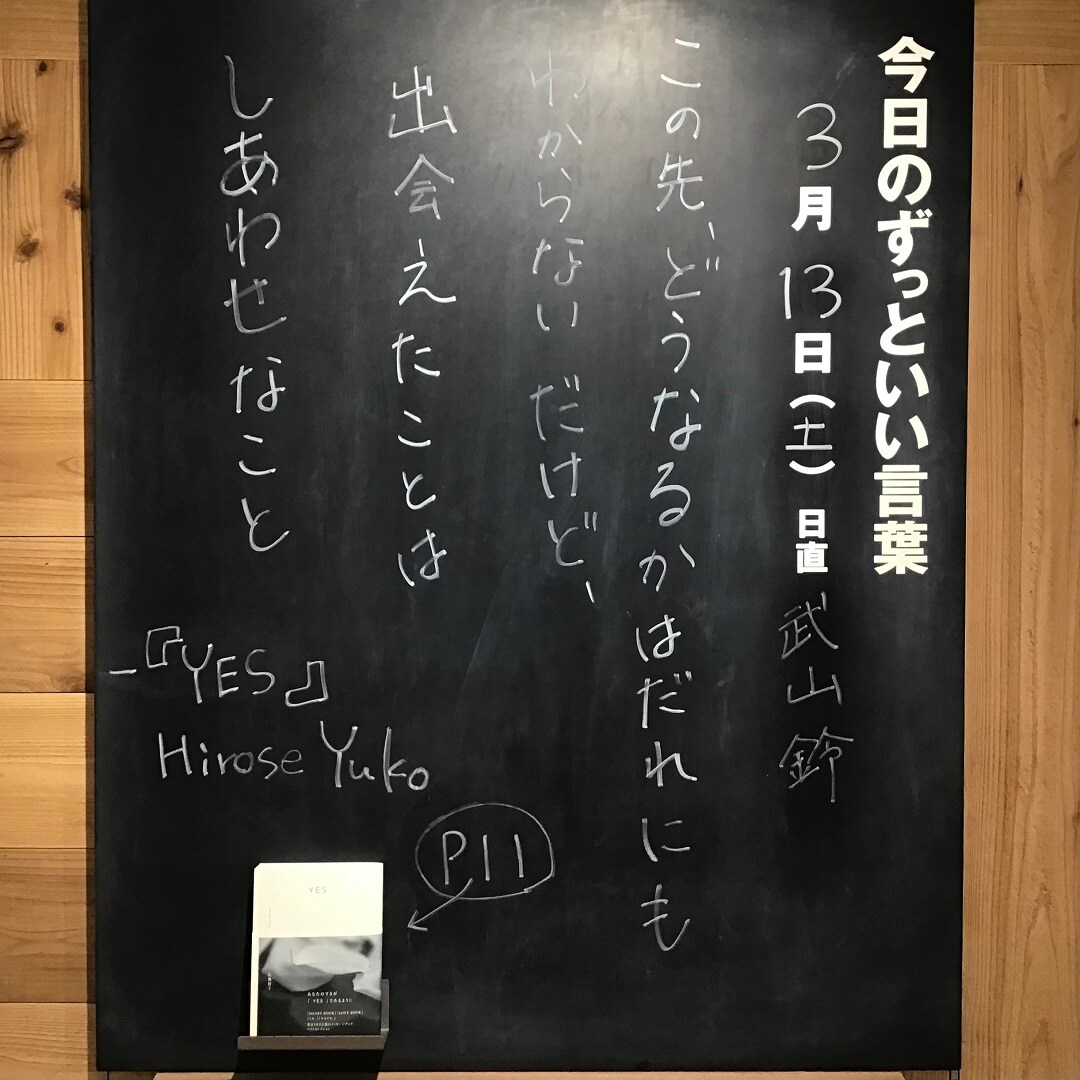 今日のずっといい言葉
3月13日(土) 日直 武山鈴
この先、どうなるかはだれにも
わからないだけど、
出会えたことは
しあわせなこと
-『YES』
Hirose Yuko
P11
YES
あなたのすきが
「YES」であるように